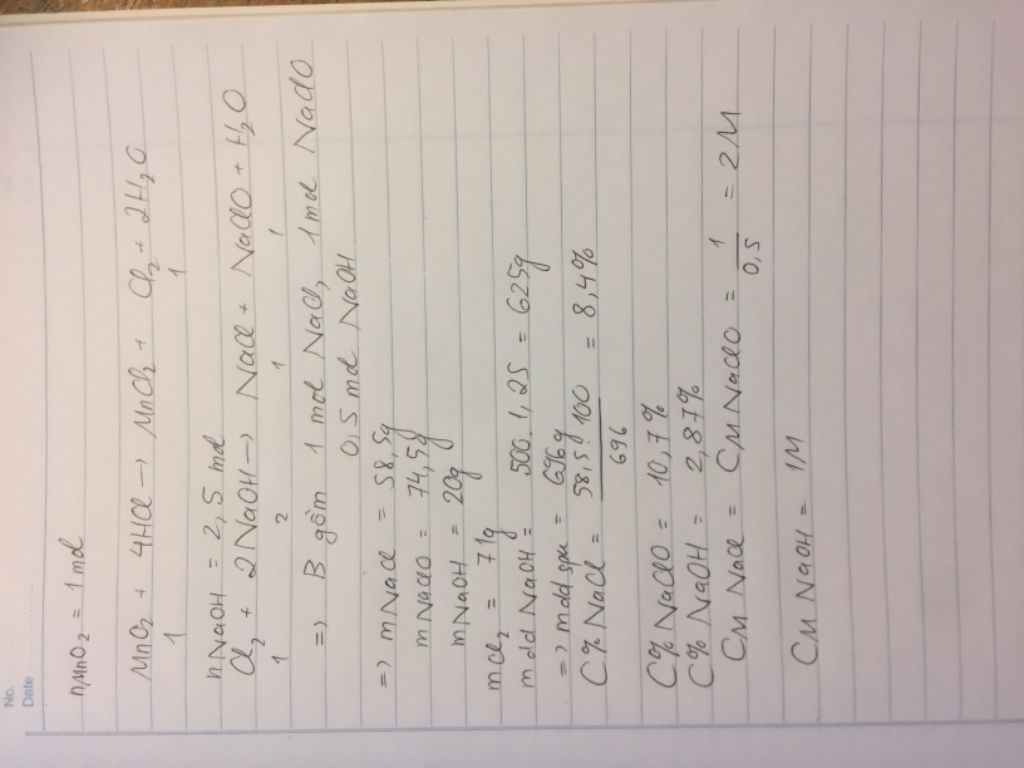 No.
Date
nMnO₂ = 1 mol
MnO₂ + 4HCl → MnCl₂ + Cl₂ + 2H₂O
1 1
nNaOH = 2,5 mol
Cl₂ + 2NaOH → NaCl + NaClO + H₂O
1 2 1 1
=> B gồm 1 mol NaCl, 1 mol NaClO
0,5 mol NaOH
=> mNaCl = 58,5g
mNaClO = 74,5g
mNaOH = 20g
mCl₂ = 71g
mdd NaOH = 500.1,25 = 625g
=> mdd spu = 696g
C% NaCl = 58,5.100 / 696 = 8,4%
C% NaClO = 10,7%
C% NaOH = 2,87%
CM NaCl = CM NaClO = 1 / 0,5 = 2M
CM NaOH = 1M